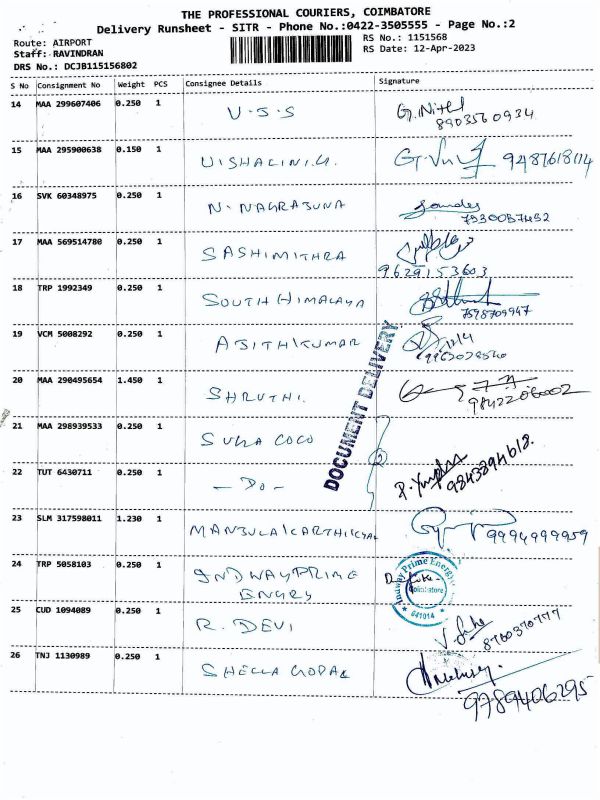 THE PROFESSIONAL COURIERS, COIMBATORE
Delivery Runsheet - SITR - Phone No.:0422-3505555 - Page No.:2
Route: AIRPORT
RS No.: 1151568
Staff: RAVINDRAN
RS Date: 12-Apr-2023
DRS No.: DCJB115156802
S No Consignment No Weight PCS Consignee Details Signature
14 MAA 299607406 0.250 1 U.S.S G.Nithl
8903560934
15 MAA 295900638 0.150 1 VISHALINI.G. 9487618114
16 SVK 60348975 0.250 1 N. NAGRAJUNA
17 MAA 569514780 0.250 1 SASHIMITHRA
9629153603
18 TRP 1992349 0.250 1 SOUTH HIMALAYA
7598709947
19 VCM 5008292 0.250 1 AJITHKUMAR
20 MAA 290495654 1.450 1 SHRUTHI.
9842206002
21 MAA 298939533 0.250 1 SULLA COCO
DOCUMENT DELIVERY
22 TUT 6430711 0.250 1 - Do -
9843894618.
23 SLM 317598011 1.230 1 MANJULA KARTHIKYAL 9994999959
24 TRP 5058103 0.250 1 INDWAY PRIME
ENGRY
Indway Prime Energy
Coimbatore
641014
25 CUD 1094089 0.250 1 R. DEVI
8760370777
26 TNJ 1130989 0.250 1 SHEELA GOPAL
9789406295